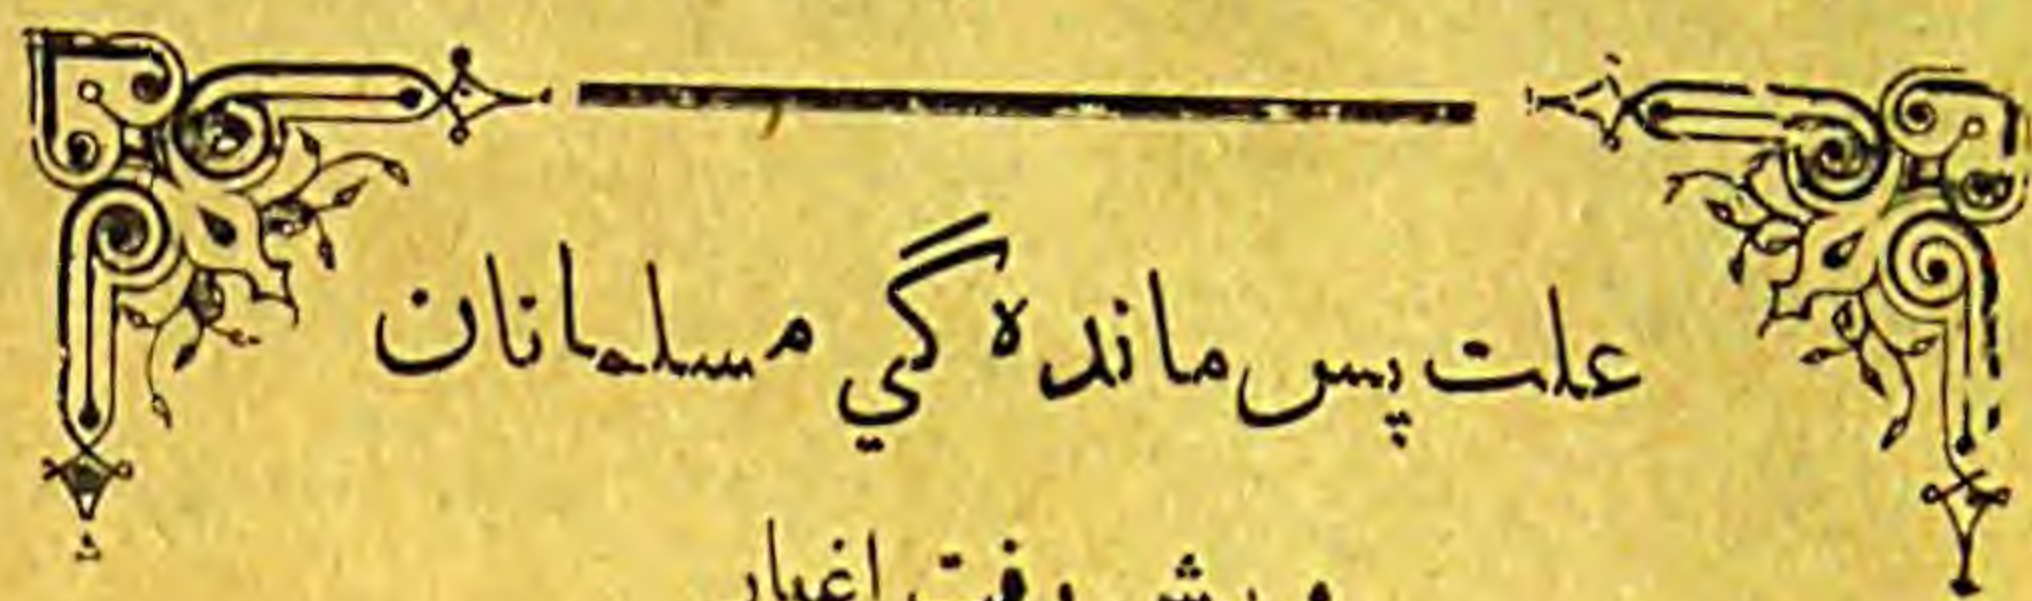 علت پس مانده گي مسلمانان
و پیش رفت اغیار